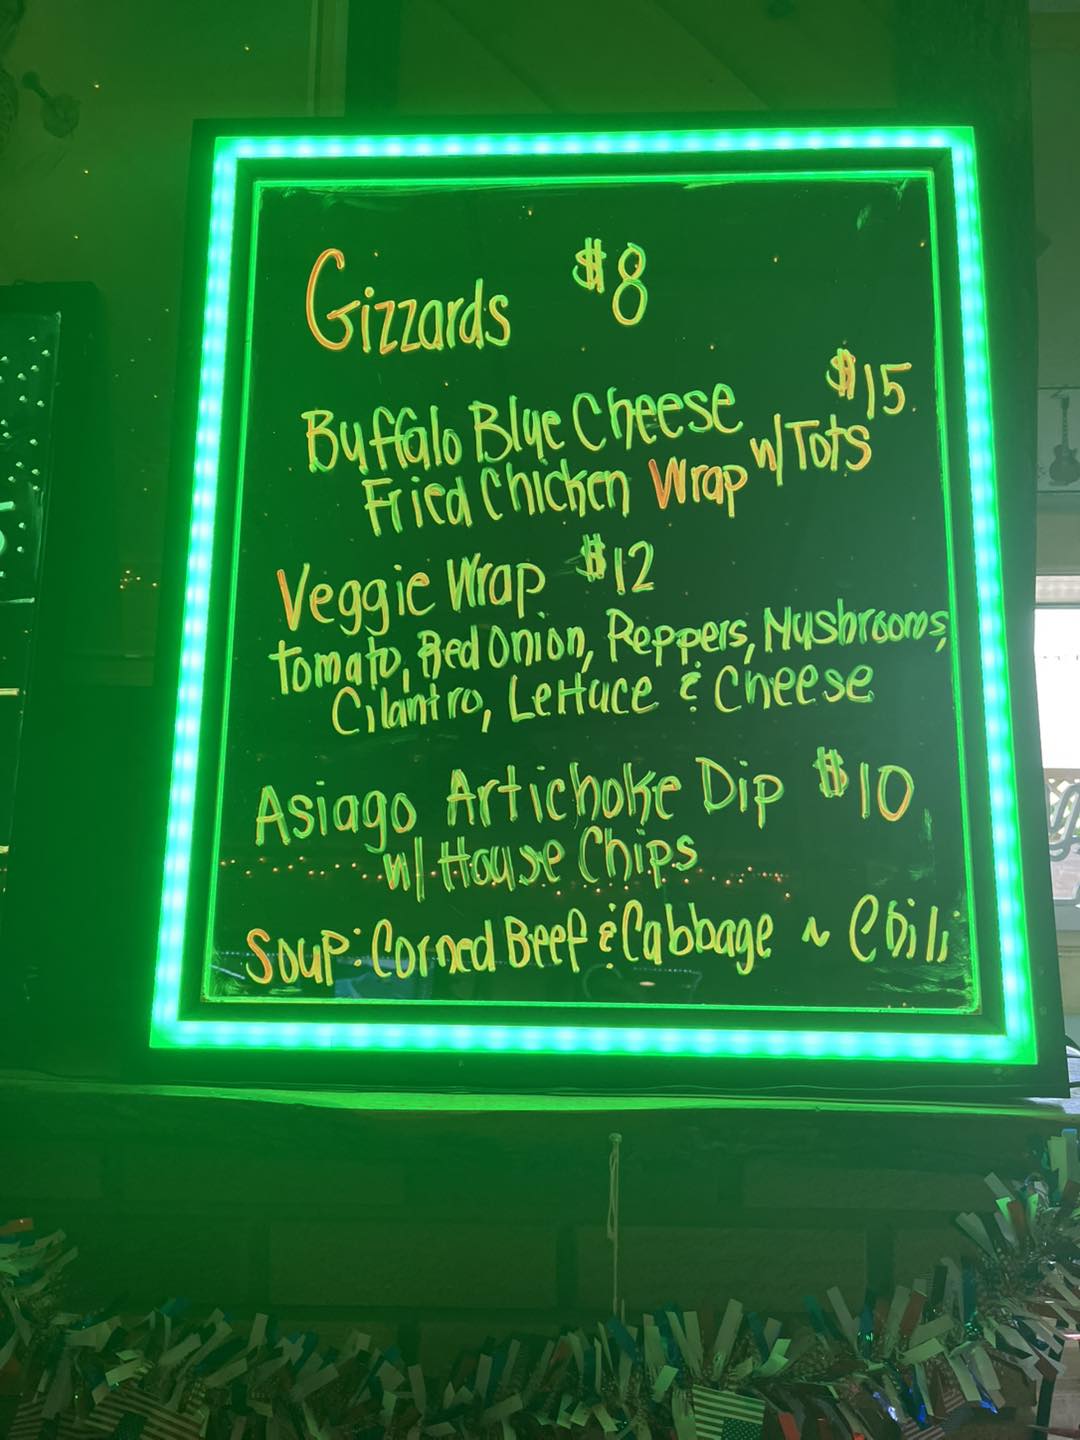 Gizzards $8
Buffalo Blue Cheese $15
Fried Chicken Wrap w/Tots
Veggie Wrap $12
Tomato, Red Onion, Peppers, Mushrooms,
Cilantro, Lettuce & Cheese
Asiago Artichoke Dip $10
w/ House Chips
Soup: Corned Beef & Cabbage ~ Chili